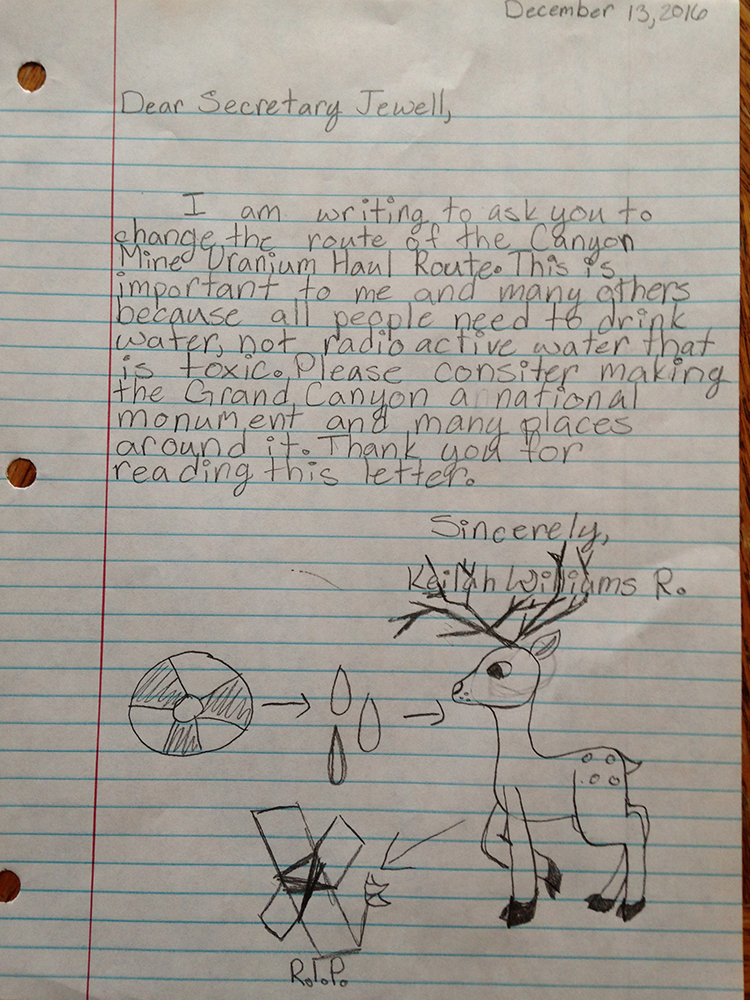 December 13, 2016
Dear Secretary Jewell,
I am writing to ask you to
change the route of the Canyon
Mine Uranium Haul Route. This is
important to me and many others
because all people need to drink
water, not radioactive water that
is toxic. Please consiter making
the Grand Canyon a national
monument and many places
around it. Thank you for
reading this letter.
Sincerely,
Keilah Williams R.
R.I.P.